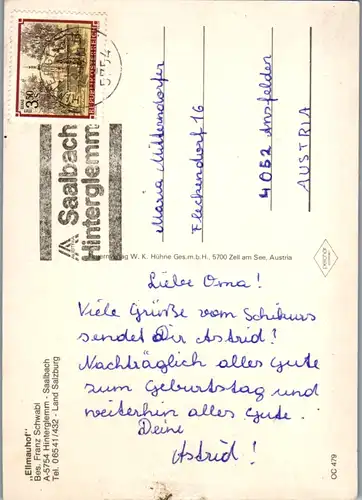 Liebe Oma!
Viele Grüße vom Schikurs
sendet Dir Astrid!
Nachträglich alles Gute
zum Geburtstag und
weiterhin alles Gute.
Deine
Astrid!
Maria Mitterndorfer
Fleckendorf 16
4052 Ansfelden
AUSTRIA
Saalbach
Hinterglemm
5754
3.50
REPUBLIK ÖSTERREICH
W. K. Hühne Ges.m.b.H., 5700 Zell am See, Austria
„Ellmauhof"
Bes. Franz Schwabl
A-5754 Hinterglemm - Saalbach
Tel. 06541/432 - Land Salzburg
OC 479